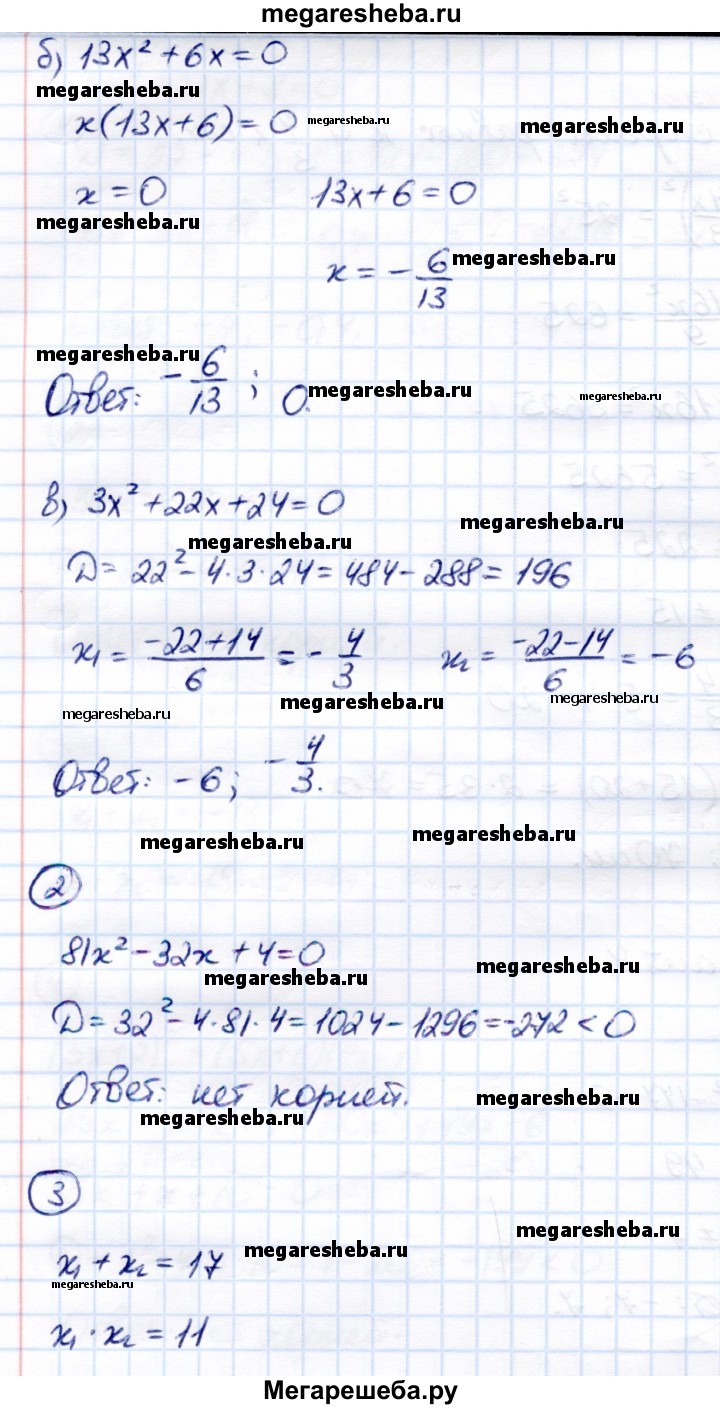 megaresheba.ru
б) 13x² + 6x = 0
megaresheba.ru
x(13x+6) = 0 megaresheba.ru megaresheba.ru
x = 0 13x + 6 = 0
megaresheba.ru
x = - 6/13 megaresheba.ru
megaresheba.ru
Ответ: - 6/13 ; 0. megaresheba.ru megaresheba.ru
в) 3x² + 22x + 24 = 0
megaresheba.ru
megaresheba.ru
D = 22² - 4·3·24 = 484 - 288 = 196
x₁ = (-22+14)/6 = - 4/3 x₂ = (-22-14)/6 = -6
megaresheba.ru megaresheba.ru
megaresheba.ru
Ответ: -6; - 4/3.
megaresheba.ru megaresheba.ru
2
81x² - 32x + 4 = 0
megaresheba.ru megaresheba.ru
D = 32² - 4·81·4 = 1024 - 1296 = -272 < 0
Ответ: нет корней.
megaresheba.ru megaresheba.ru
3
megaresheba.ru
x₁ + x₂ = 17 megaresheba.ru
megaresheba.ru
x₁ · x₂ = 11
Мегарешеба.ру